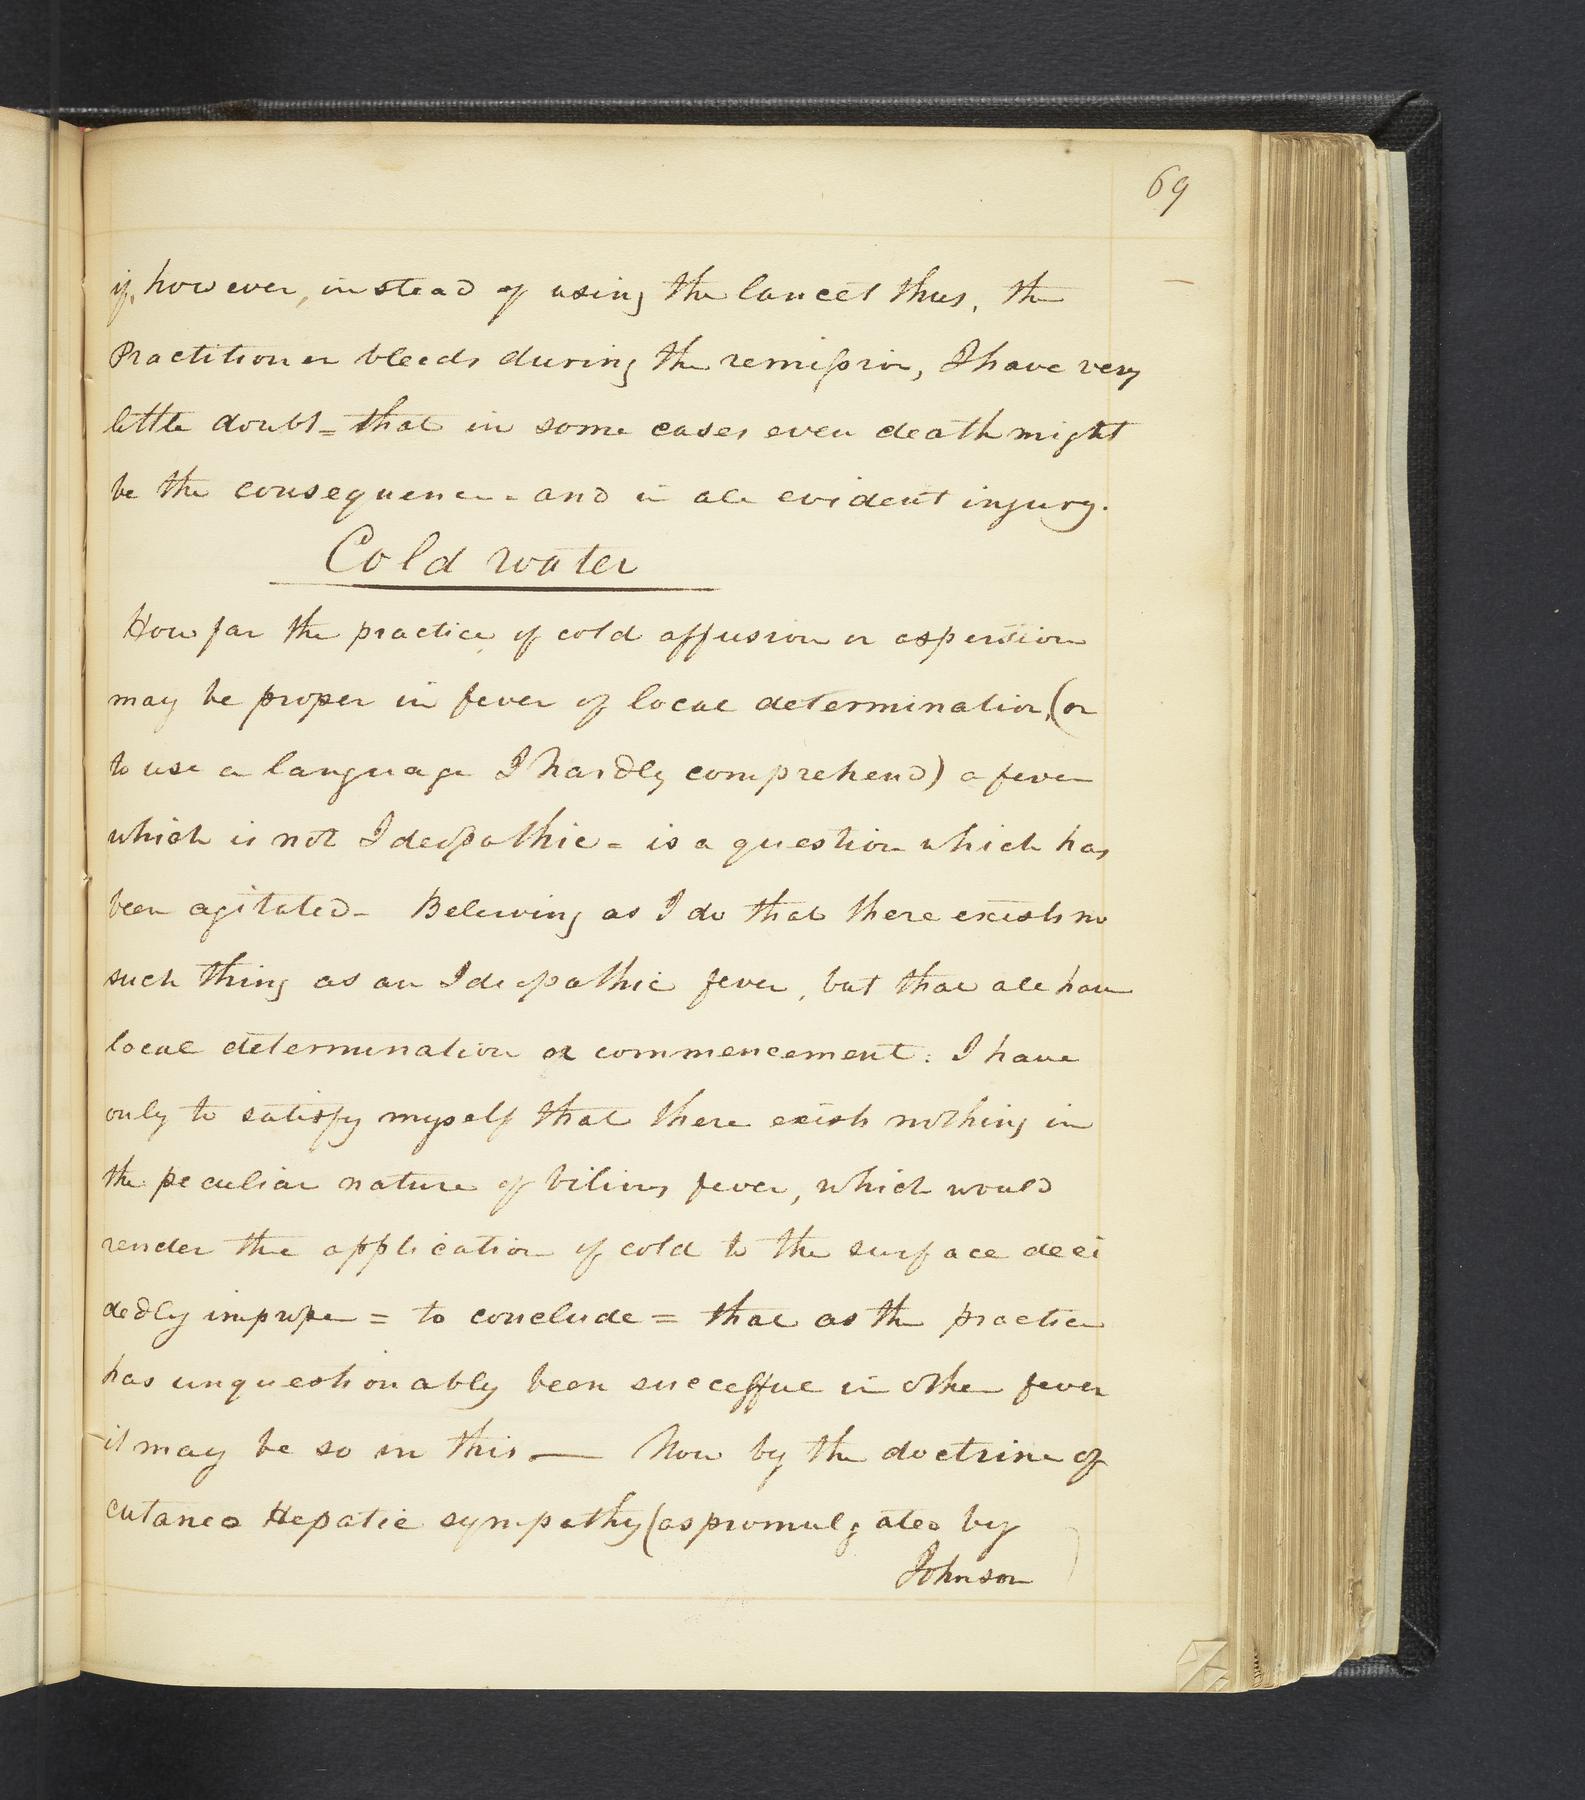 69
if, however, instead of using the lancet thus, the
Practitioner bleeds during the remission, I have very
little doubt = that in some cases even death might
be the consequence - and in all evident injury.
Cold water
How far the practice of cold affusion or aspersion
may be proper in fever of local determination, (or
to use a language I hardly comprehend) a fever
which is not Ideopathic = is a question which has
been agitated - Beleiving as I do that there exists no
such thing as an Ideopathic fever, but that all have
local determination or commencement: I have
only to satisfy myself that there exists nothing in
the peculiar nature of bilious fever, which would
render the application of cold to the surface deci
dedly improper = to conclude = that as the practice
has unquestionably been successful in other fever
it may be so in this — Now by the doctrine of
cutaneo Hepatic sympathy (as promulgated by
Johnson